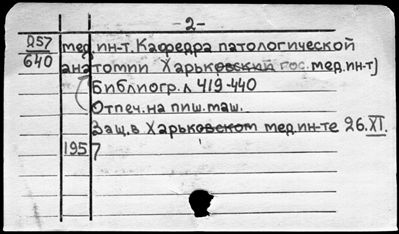 -2-
Д57
640
мед.ин-т. Кафедра патологической
анатомии Харьковский гос. мед.ин-т)
Библиогр. л 419-440
Отпеч. на пиш. маш.
Защ. в Харьковском медин-те 26.XI.
1957